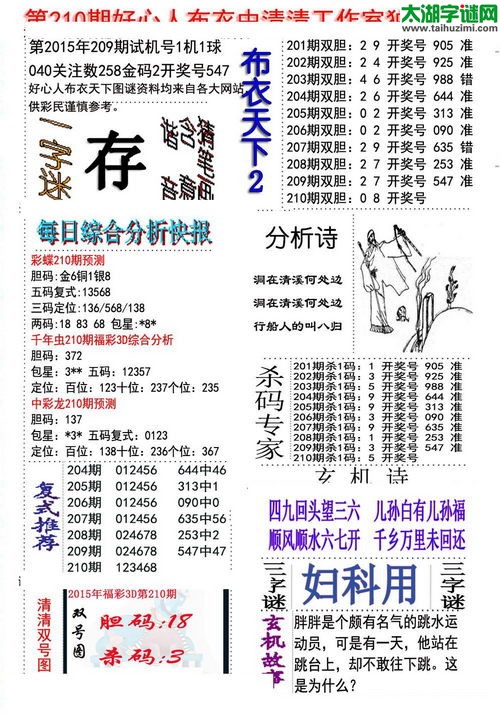 第210期好心人布衣虫清清工作室
太湖字谜网
www.taihuzimi.com
第2015年209期试机号1机1球
040关注数258金码2开奖号547
好心人布衣天下图谜资料均来自各大网站
供彩民谨慎参考。
一字迷
存
布衣天下2
201期双胆：2 9 开奖号 905 准
202期双胆：2 4 开奖号 925 准
203期双胆：4 6 开奖号 988 错
204期双胆：2 6 开奖号 644 准
205期双胆：0 2 开奖号 313 准
206期双胆：0 2 开奖号 090 准
207期双胆：2 9 开奖号 635 错
208期双胆：2 7 开奖号 253 准
209期双胆：2 7 开奖号 547 准
210期双胆：0 8 开奖号
每日综合分析快报
彩蝶210期预测
胆码：金6铜1银8
五码复式：13568
三码定位：136/568/138
两码：18 83 68 包星：*8*
千年虫210期福彩3D综合分析
胆码：372
包星：3** 五码：12357
定位：百位：123十位：237个位：235
中彩龙210期预测
胆码：137
包星：*3* 五码复式：0123
定位：百位：138十位：236个位：367
分析诗
洞在清溪何处边
洞在清溪何处边
行船人的叫八归
杀码专家
201期杀1码：1 开奖号 905 准
202期杀1码：3 开奖号 925 准
203期杀1码：5 开奖号 988 准
204期杀1码：9 开奖号 644 准
205期杀1码：9 开奖号 313 准
206期杀1码：6 开奖号 090 准
207期杀1码：9 开奖号 635 准
208期杀1码：1 开奖号 253 准
209期杀1码：3 开奖号 547 准
210期杀1码：5 开奖号
复式推荐
204期 012456 644中46
205期 012456 313中1
206期 012456 090中0
207期 012456 635中56
208期 024678 253中2
209期 024678 547中47
210期 123468
玄机诗
四九回头望三六 儿孙自有儿孙福
顺风顺水六七开 千乡万里未回还
清清双号图
2015年福彩3D第210期
双号图
胆码:18
杀码:3
三字谜
妇科用
三字谜
玄机故事
胖胖是个颇有名气的跳水运
动员，可是有一天，他站在
跳台上，却不敢往下跳。这
是为什么？